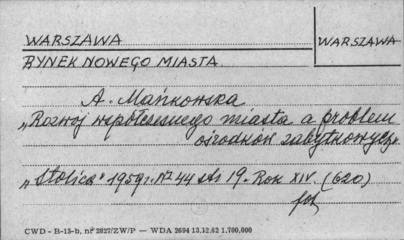 WARSZAWA
WARSZAWA
RYNEK NOWEGO MIASTA
A. Mańkowska
„Rozwój współczesnego miasta a problem
ośrodków zabytkowych"
„Stolica" 1959r. Nr 44 str 19. Rok XIV. (620)
fot
CWD - B-15-b, nr 3827/ZW/P — WDA 2694 13.12.62 1,700,000